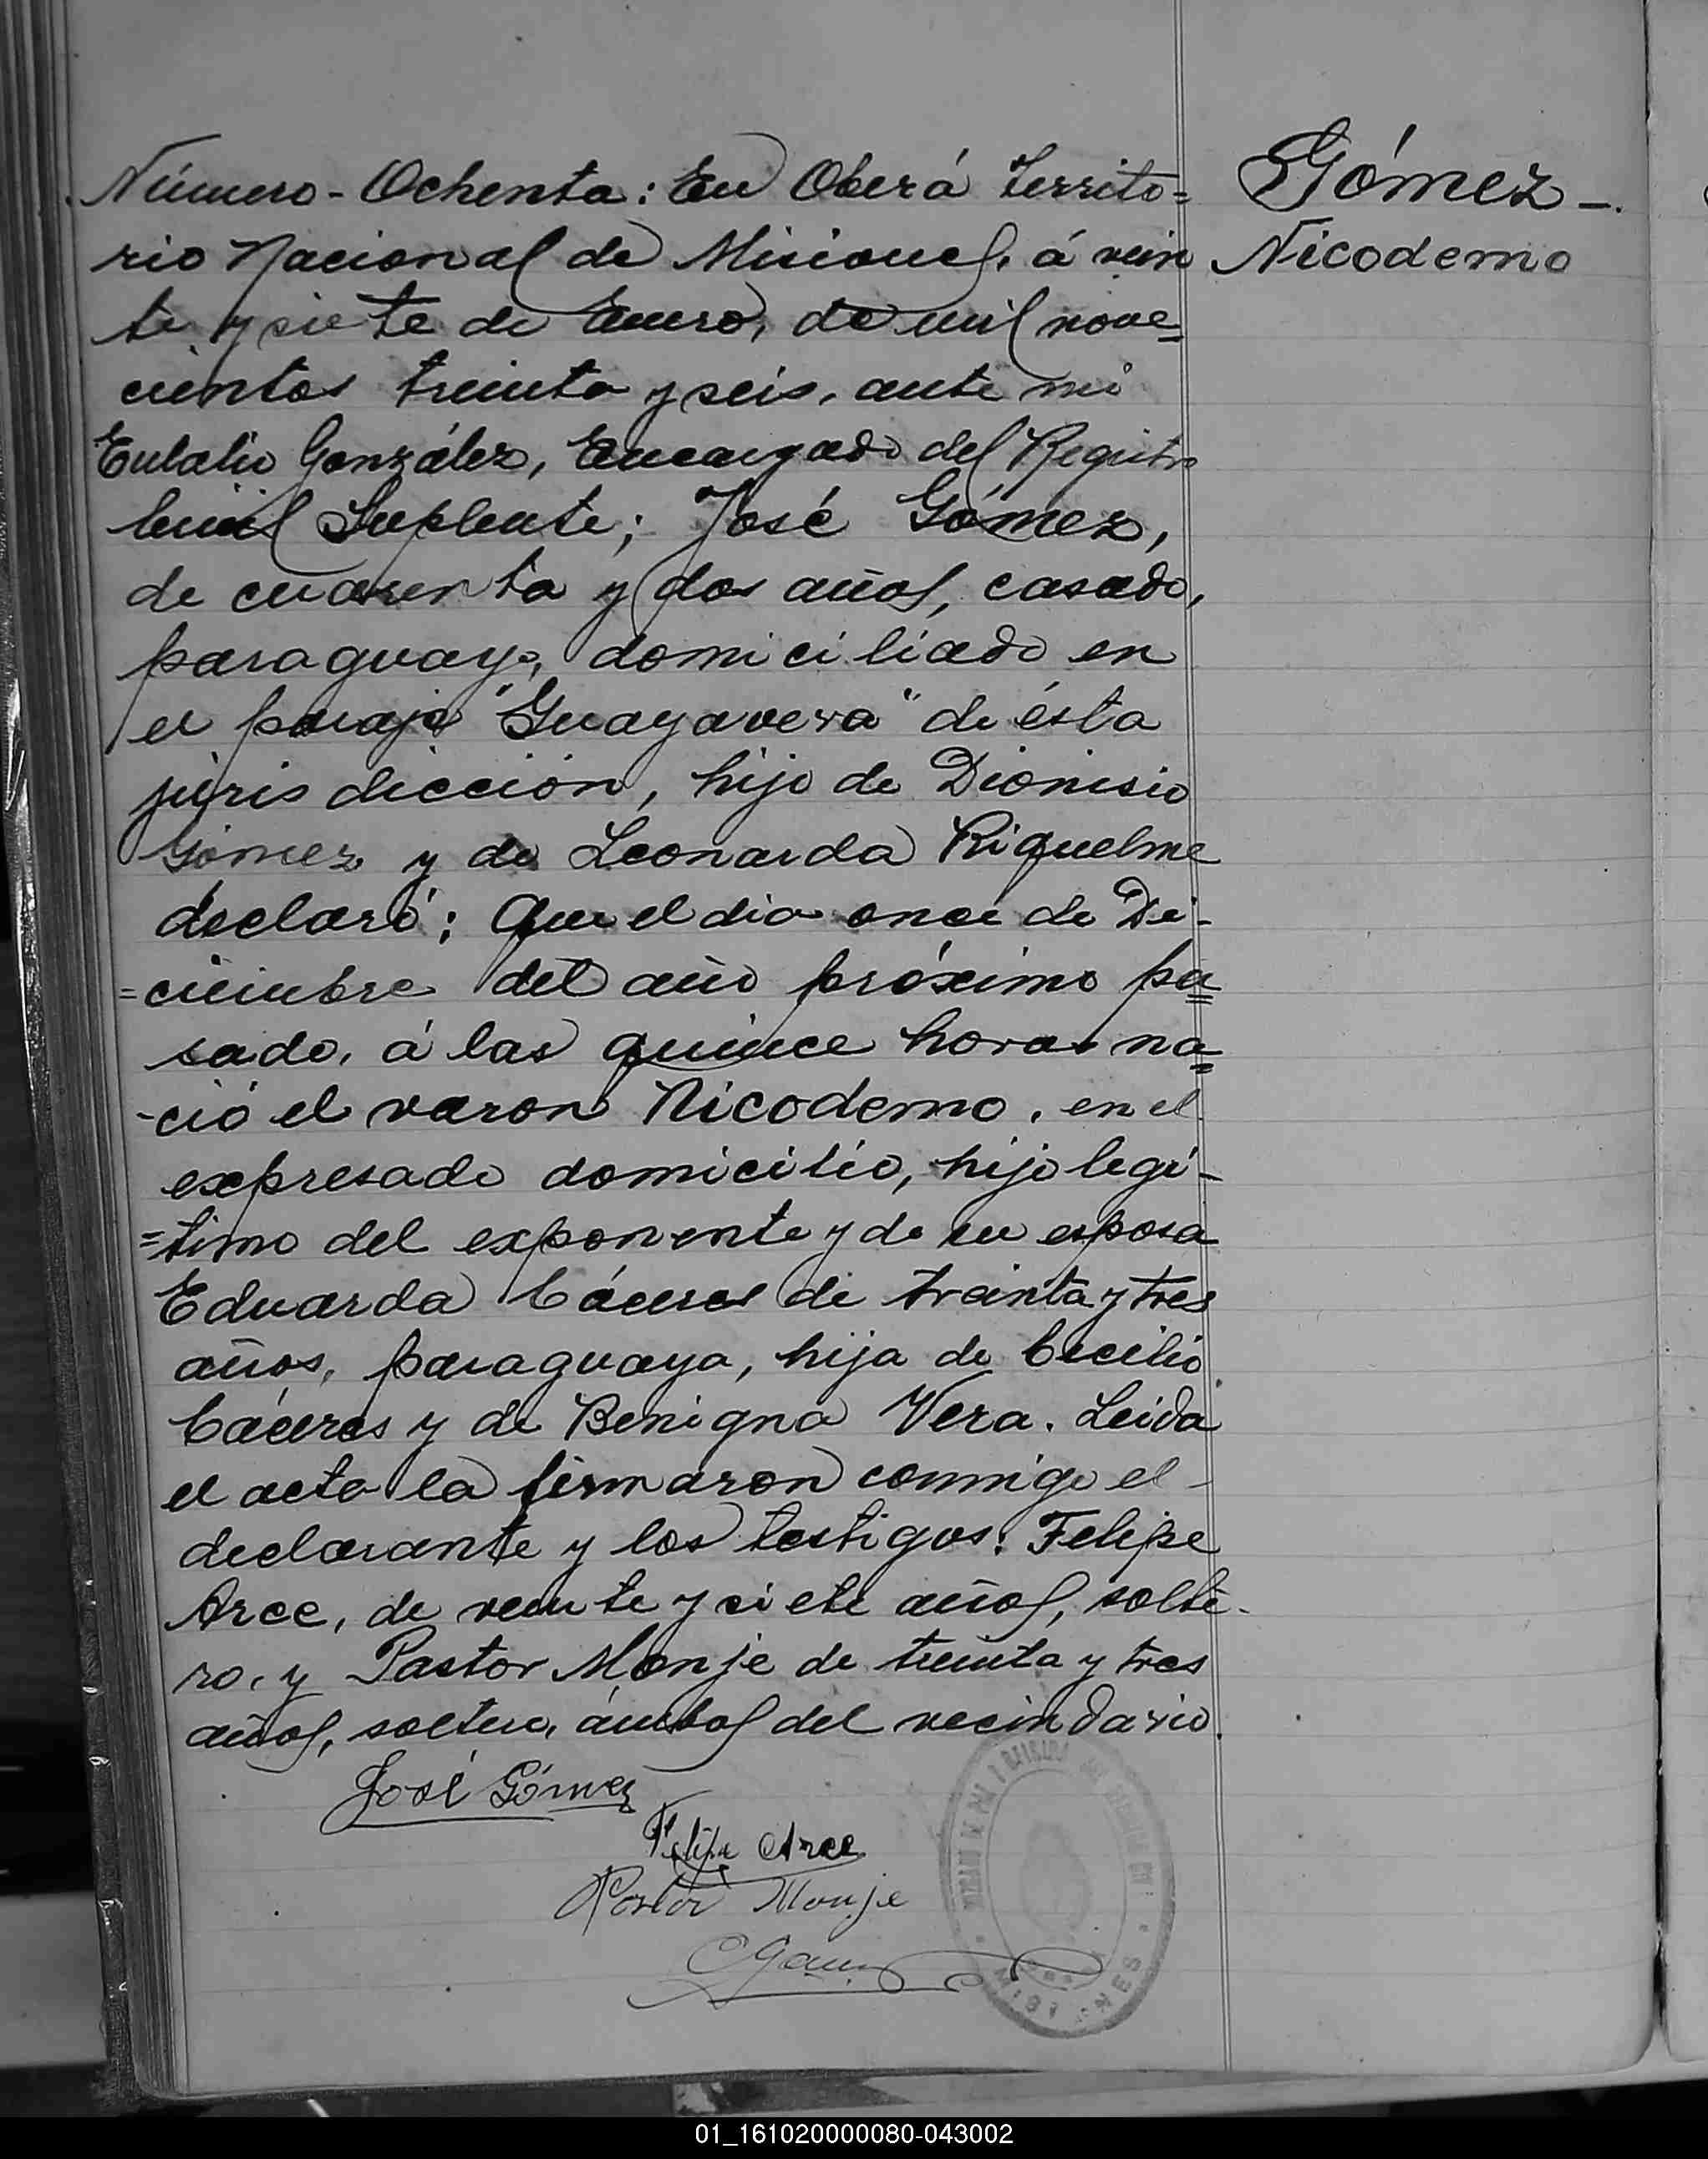 Número - Ochenta: En Oberá Territo=
rio Nacional de Misiones, á vein
te y siete de Enero, de mil nove=
cientos treinta y seis, ante mi
Eulalio González, Encargado del Registro
Civil Suplente; José Gómez,
de cuarenta y dos años, casado,
paraguayo, domiciliado en
el paraje "Guayavera" de ésta
jurisdicción, hijo de Dionisio
Gómez y de Leonarda Riquelme
declaró: Que el dia once de Di-
=ciembre del año próximo pa=
sado, á las quince horas na=
-ció el varon Nicodemo, en el
expresado domicilio, hijo legi-
=timo del exponente y de su esposa
Eduarda Cáceres de treinta y tres
años, paraguaya, hija de Cecilio
Cáceres y de Benigna Vera. Leida
el acta la firmaron conmigo el
declarante y los testigos: Felipe
Arce, de veinte y siete años, solte-
ro, y Pastor Monje de treinta y tres
años, soltero, ámbos del vecindario.
Gómez -.
Nicodemo
José Gómez
Felipe Arce
Pastor Monje
MISIONES
01_161020000080-043002